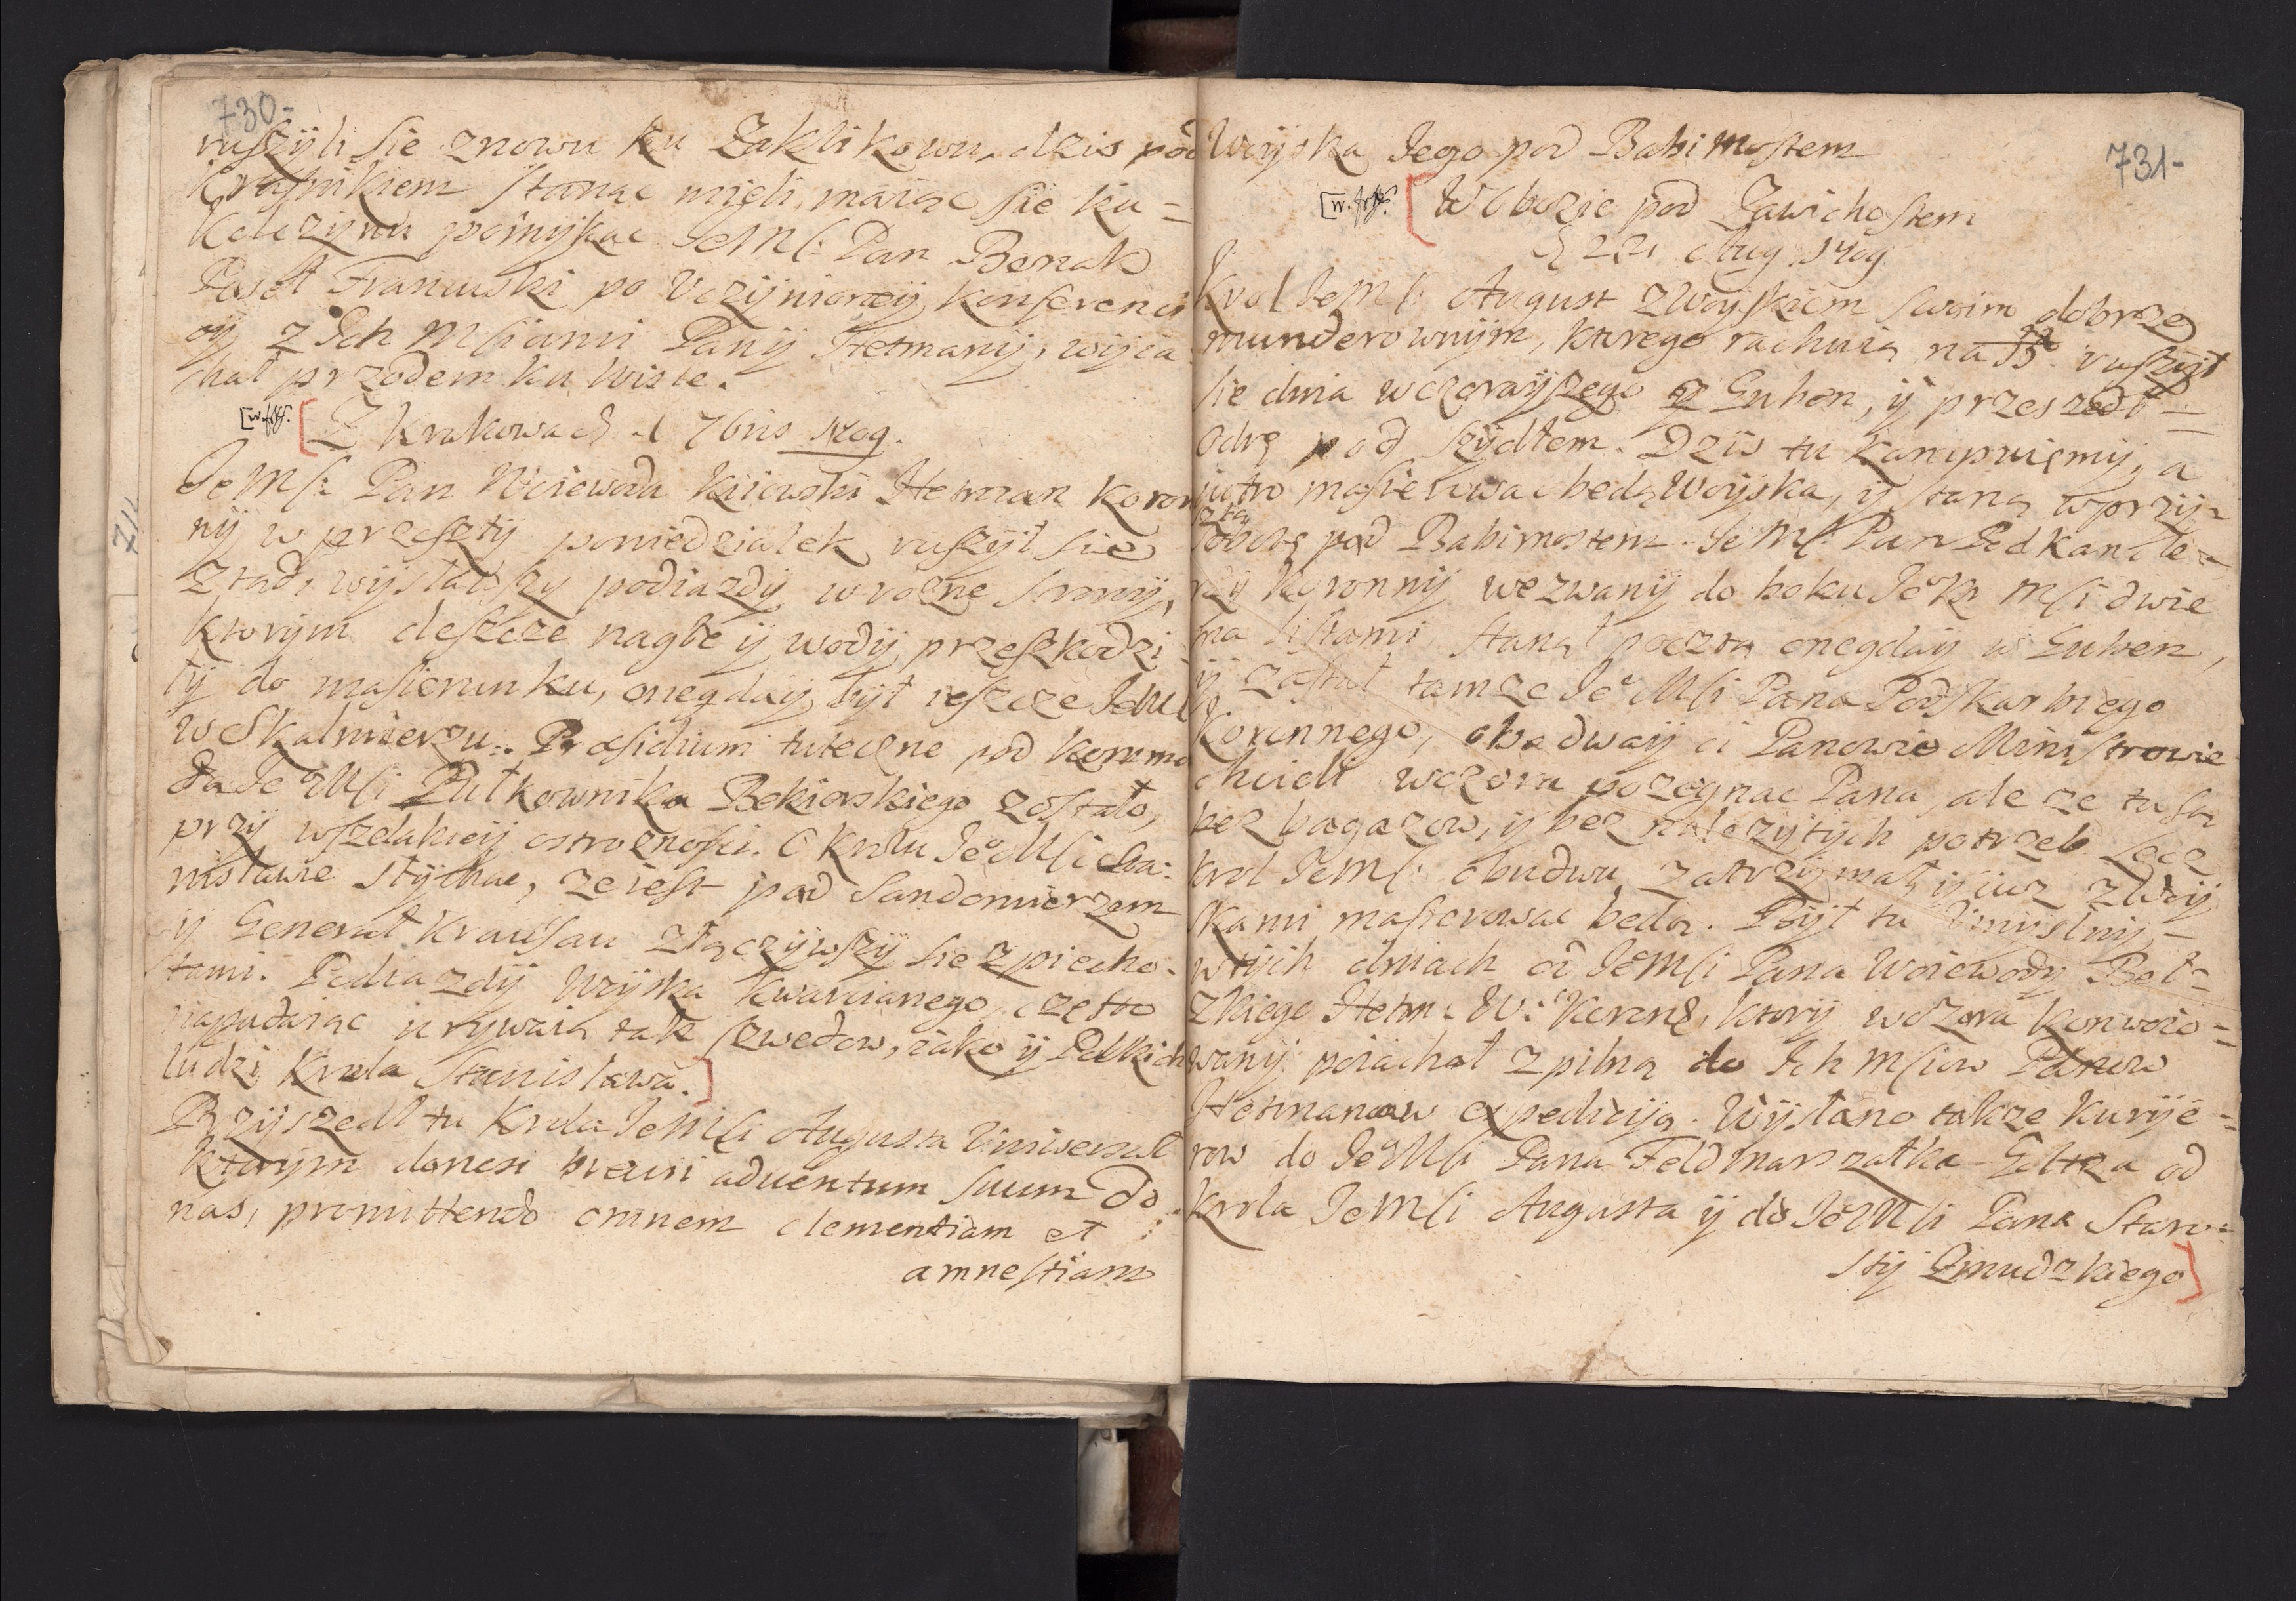 730-
ruszÿli się znowu ku Zaklikowu, dzis pod
Krasnikiem stanąc mieli, maiąc się ku-
Kolczÿnu pomÿkac JeMſc Pan Bonak
Poseł Francuski po Uczÿnioneÿ Konferencÿ
ÿ z Ich Mſciami Panÿ Hetmanÿ, wÿiá
chał przodem ku Wisle.
Z Krakowa d 7bris 1709.
JeMſc Pan Woiewoda Kiiowski Hetman Koron
nÿ w przeszłÿ poniedziałek ruszÿł się
ztąd, wÿsławszÿ podiazdÿ w rozne stronÿ,
ktorÿm deszcze nagłe ÿ wodÿ przeszkodzi-
łÿ do maszerunku, onegdaÿ bÿł ieszcze JeMſc
w Skalmierzu. Præsidium tuteczne pod komme
dą Jeo Mſci Pułkownika Bekierskiego zostało,
przÿ wszelakieÿ ostroznosci. O Krolu Jeo Mſci Sta:
nisławie słÿchac, ze iest pod Sandomierzem
ÿ Generał Krausau złączÿwszÿ się z piecho-
tami. Podiazdÿ Woÿska Kwarcianego często
napadaiąc urÿwaią tak szwedow, iako ÿ Polskich
ludzi Krola Stanisława.
Przÿszedł tu Krola JeMſci Augusta Uniwersał
Ktorÿm donosi brevi adventum suum do
nas, promittendo omnem clementiam et
amnestiam
731-
Woÿska Jego pod Babimostem
W Obozie pod Zawichostem
d 22 Aug 1709
Krol JeMſc August z Woÿskiem swoim dobrze
munderownÿm, ktorego rachuią na ruszÿł
się dnia wczoraÿszego z Guben, ÿ przeszedł
Odrę pod szÿdłem. Dzis tu kampuięmÿ, a
iutro maszerowac będą Woÿska, ÿ staną w przÿ-
szłą sobotę pod Babimostem. JeMſc Pan Podkancle-
rzÿ Koronnÿ wezwanÿ do boku Jeo K Mſci dwie
ma listami stanął pocztą onegdaÿ w Guben,
ÿ zastał tamze Jeo Mſci Pana Podskarbiego
Koronnego, obadwaÿ ci Panowie Ministrowie
chcieli wczora pozegnac Pana, ale ze tu są
bez bagazow, ÿ bez nalezÿtÿch potrzeb lecz
Krol JeMſc obudwu zatrzÿmał, ÿ iuz z Woÿ
skami maszerowac będą. Bÿł tu Umÿslnÿ
w tÿch dniach od JeoMſci Pana Woiewodÿ Beł-
zkiego Hetm: W: Koronē, ktorÿ wczora konwoio-
wanÿ poiachał z pilną do Ich Mſciow Panow
Hetmanow expedÿcÿą. Wÿsłano takze kurÿe-
row do Jeo Mſci Pana Feldmarszałka Goltza od
Krola JeMſci Augusta ÿ do Jeo Mſci Pana Staro-
stÿ Zmudzkiego